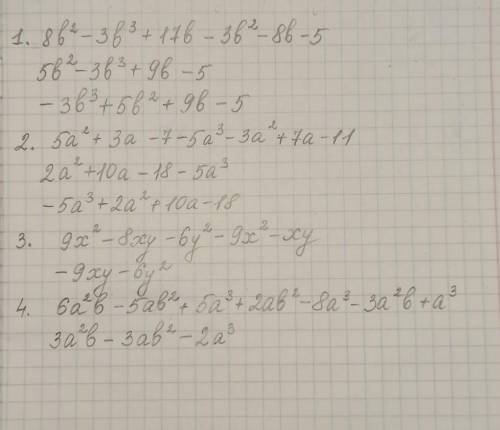 1. 8b² - 3b³ + 17b - 3b² - 8b - 5
5b² - 3b³ + 9b - 5
- 3b³ + 5b² + 9b - 5
2. 5a² + 3a - 7 - 5a³ - 3a² + 7a - 11
2a² + 10a - 18 - 5a³
- 5a³ + 2a² + 10a - 18
3. 9x² - 8xy - 6y² - 9x² - xy
- 9xy - 6y²
4. 6a²b - 5ab² + 5a³ + 2ab² - 8a³ - 3a²b + a³
3a²b - 3ab² - 2a³